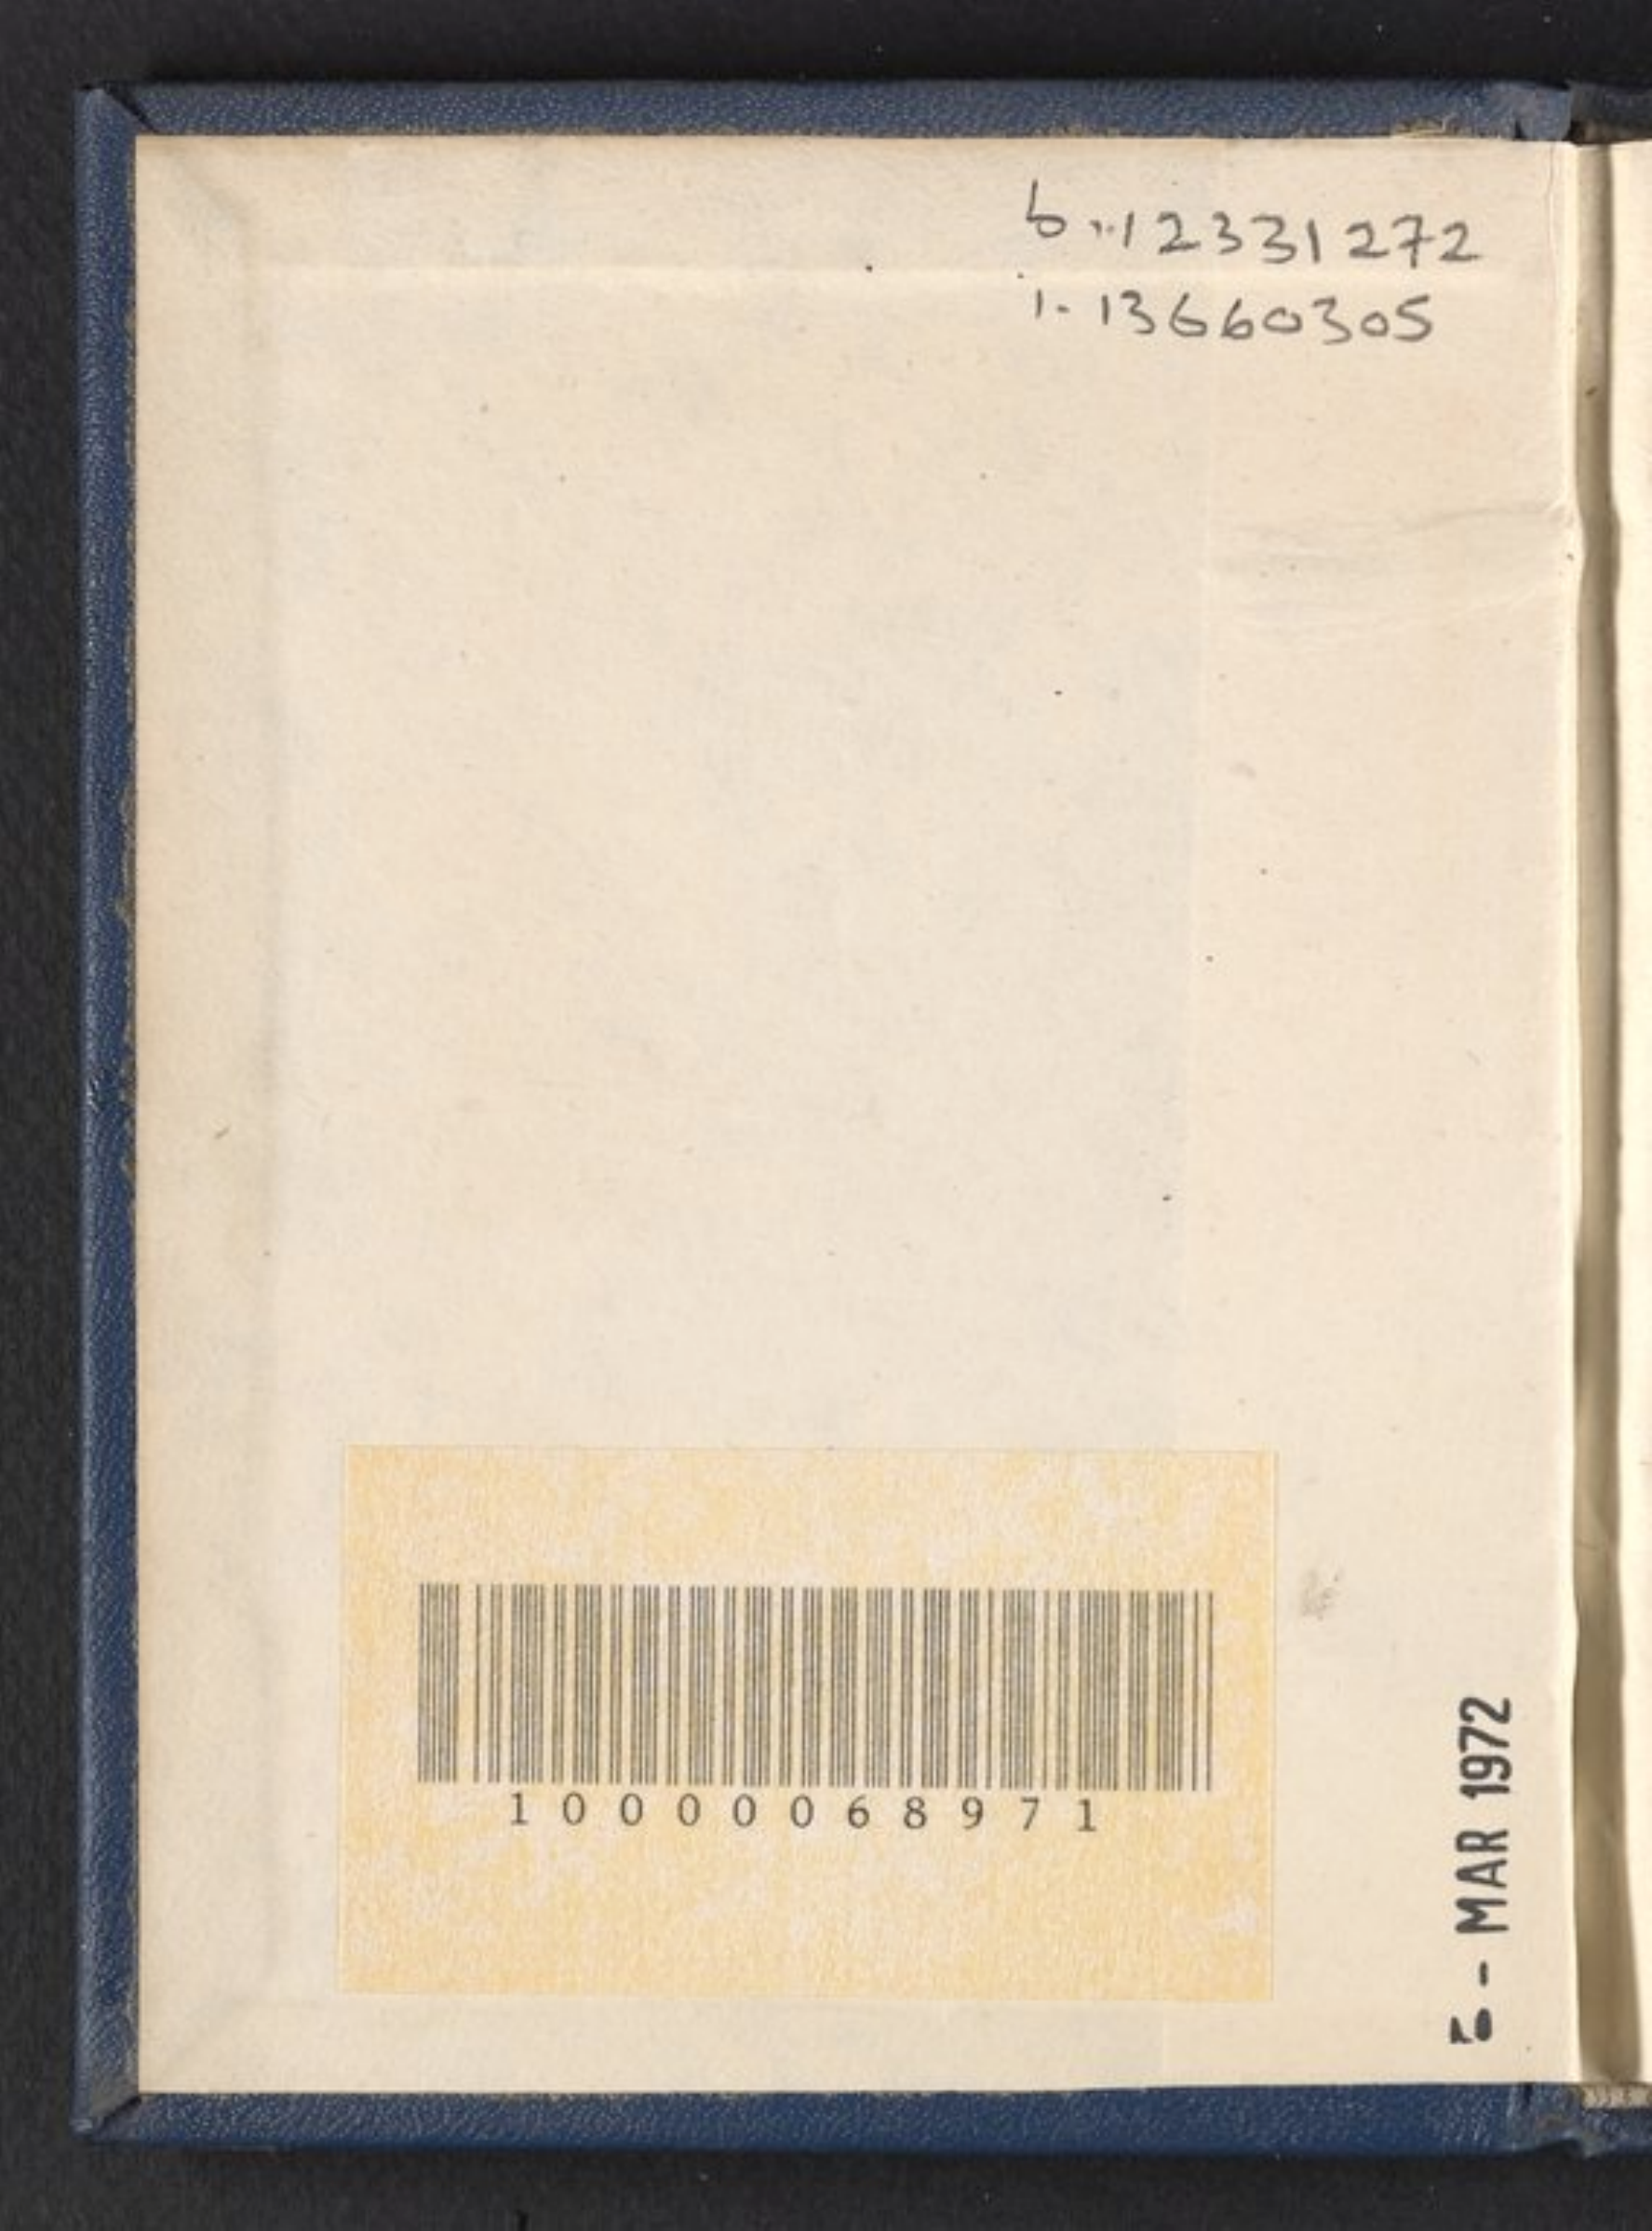 b.12331272
i.13660305
10000068971
5 - MAR 1972